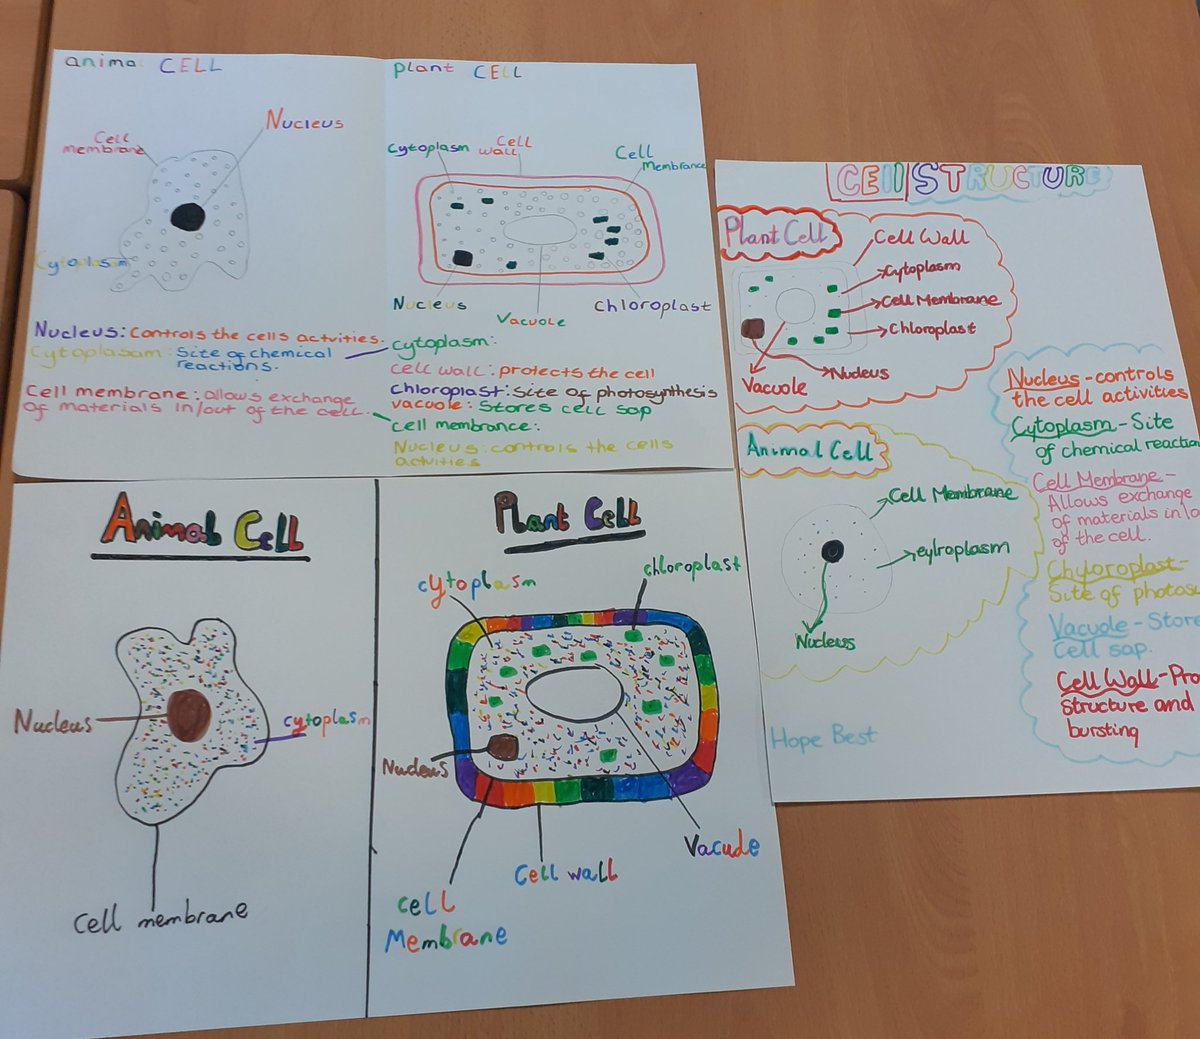 animal CELL
Cell
membrane
Nucleus
Cytoplasm
Nucleus: Controls the cells activities.
Cytoplasam: Site of chemical
reactions.
Cell membrane: allows exchange
of materials in/out of the cell.
plant CELL
Cytoplasm
Cell
wall
Cell
Membrance
Nucleus
Vacuole
Chloroplast
cytoplasm:
cell wall: protects the cell
Chloroplast: Site of photosynthesis
vacuole: Stores cell sap
cell membrance:
Nucleus: controls the cells
activities
Animal Cell
Nucleus
cytoplasm
cell membrane
Plant Cell
cytoplasm
chloroplast
Nucleus
Vacuole
cell
Membrane
Cell wall
CEll STRUCTURE
Plant Cell
Cell Wall
Cytoplasm
Cell Membrane
Chloroplast
Nucleus
Vacuole
Animal Cell
Cell Membrane
eylroplasm
Nucleus
Hope Best
Nucleus - controls
the cell activities
Cytoplasm - Site
of chemical reaction
Cell Membrane -
Allows exchange
of materials in/o
of the cell.
Chyloroplast -
Site of photos
Vacuole - Store
Cell sap.
Cell Wall - Pro
structure and
bursting